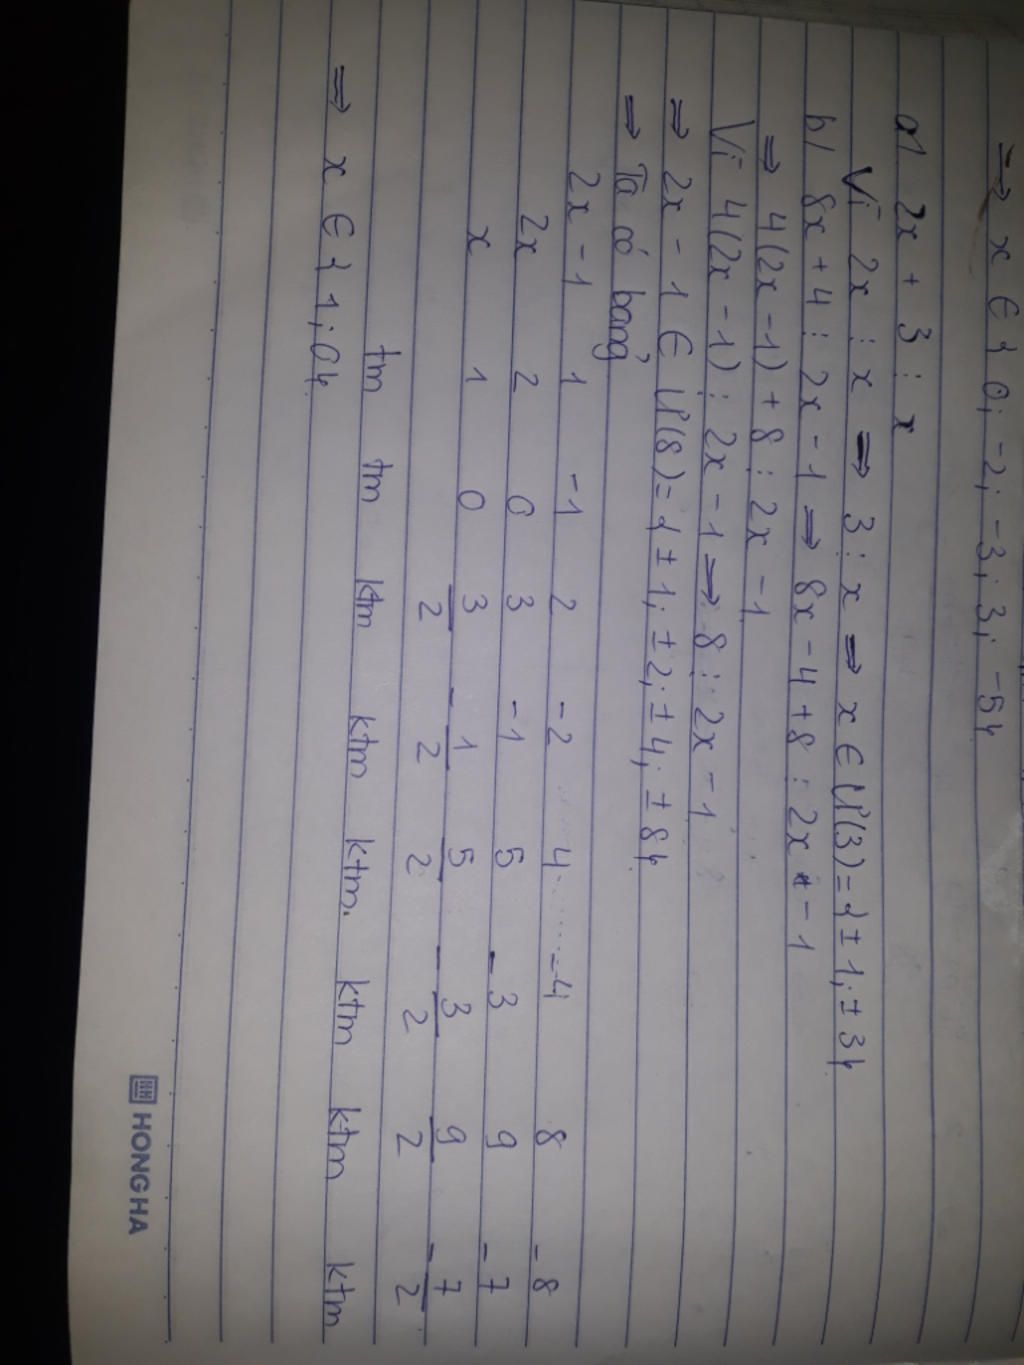 => x ∈ { 0; -2; -3; 3; -5}
a) 2x + 3 ⋮ x
Vì 2x ⋮ x => 3 ⋮ x => x ∈ Ư(3) = {± 1; ± 3}
b) 8x + 4 ⋮ 2x - 1 => 8x - 4 + 8 ⋮ 2x - 1
=> 4(2x - 1) + 8 ⋮ 2x - 1
Vì 4(2x - 1) ⋮ 2x - 1 => 8 ⋮ 2x - 1
=> 2x - 1 ∈ Ư(8) = {± 1; ± 2; ± 4; ± 8}
=> Ta có bảng
2x - 1 1 -1 2 -2 4 -4 8 -8
2x 2 0 3 -1 5 -3 9 -7
x 1 0 3/2 -1/2 5/2 -3/2 9/2 -7/2
tm tm ktm ktm ktm. ktm ktm ktm
=> x ∈ {1; 0}
HONG HA